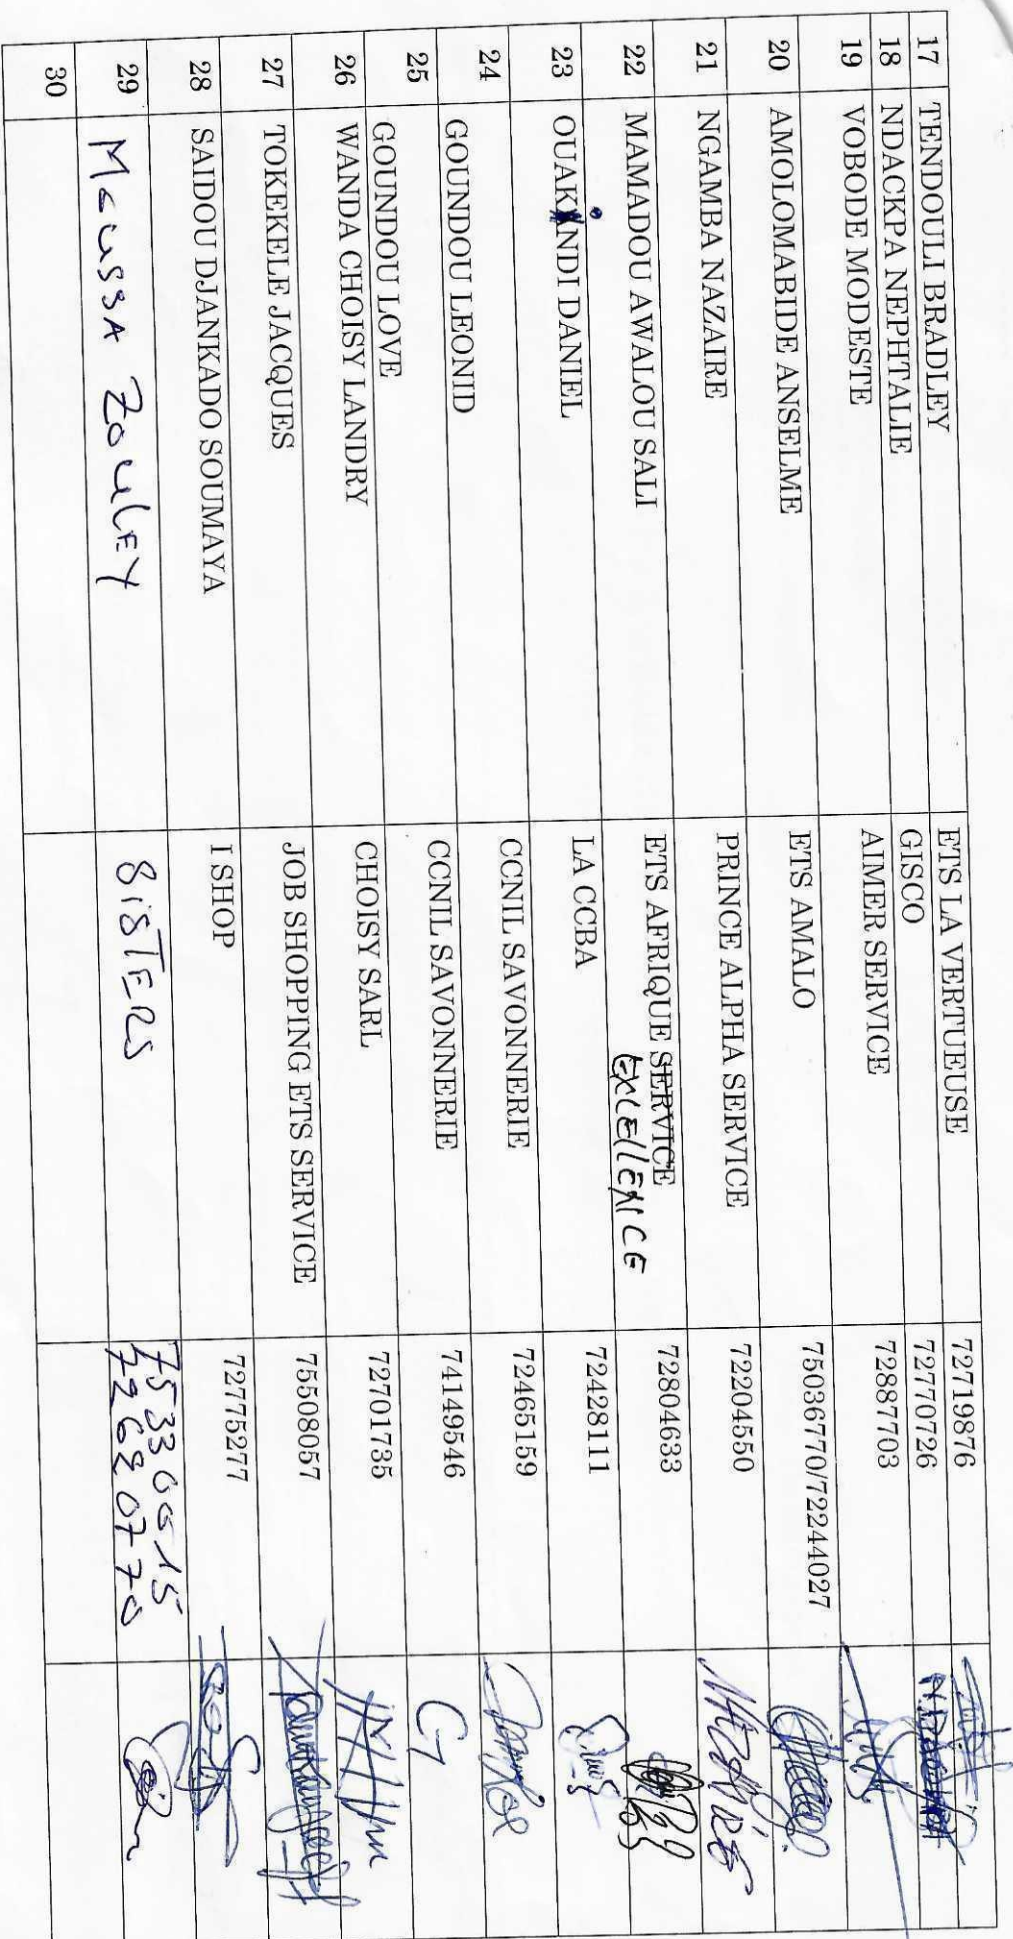 17 TENDOULI BRADLEY ETS LA VERTUEUSE 72719876
18 NDACKPA NEPHTALIE GISCO 72770726
19 VOBODE MODESTE AIMER SERVICE 72887703
20 AMOLOMABIDE ANSELME ETS AMALO 75036770/72244027
21 NGAMBA NAZAIRE PRINCE ALPHA SERVICE 72204550
22 MAMADOU AWALOU SALI ETS AFRIQUE SERVICE 72804633
EXCEllENCE
23 OUAKINDI DANIEL LA CCBA 72428111
24 GOUNDOU LEONID CCNIL SAVONNERIE 72465159
25 GOUNDOU LOVE CCNIL SAVONNERIE 74149546
26 WANDA CHOISY LANDRY CHOISY SARL 72701735
27 TOKEKELE JACQUES JOB SHOPPING ETS SERVICE 75508057
28 SAIDOU DJANKADO SOUMAYA I SHOP 72775277
29 MOUSSA ZOULEY SISTERS 75330015
72680770
30